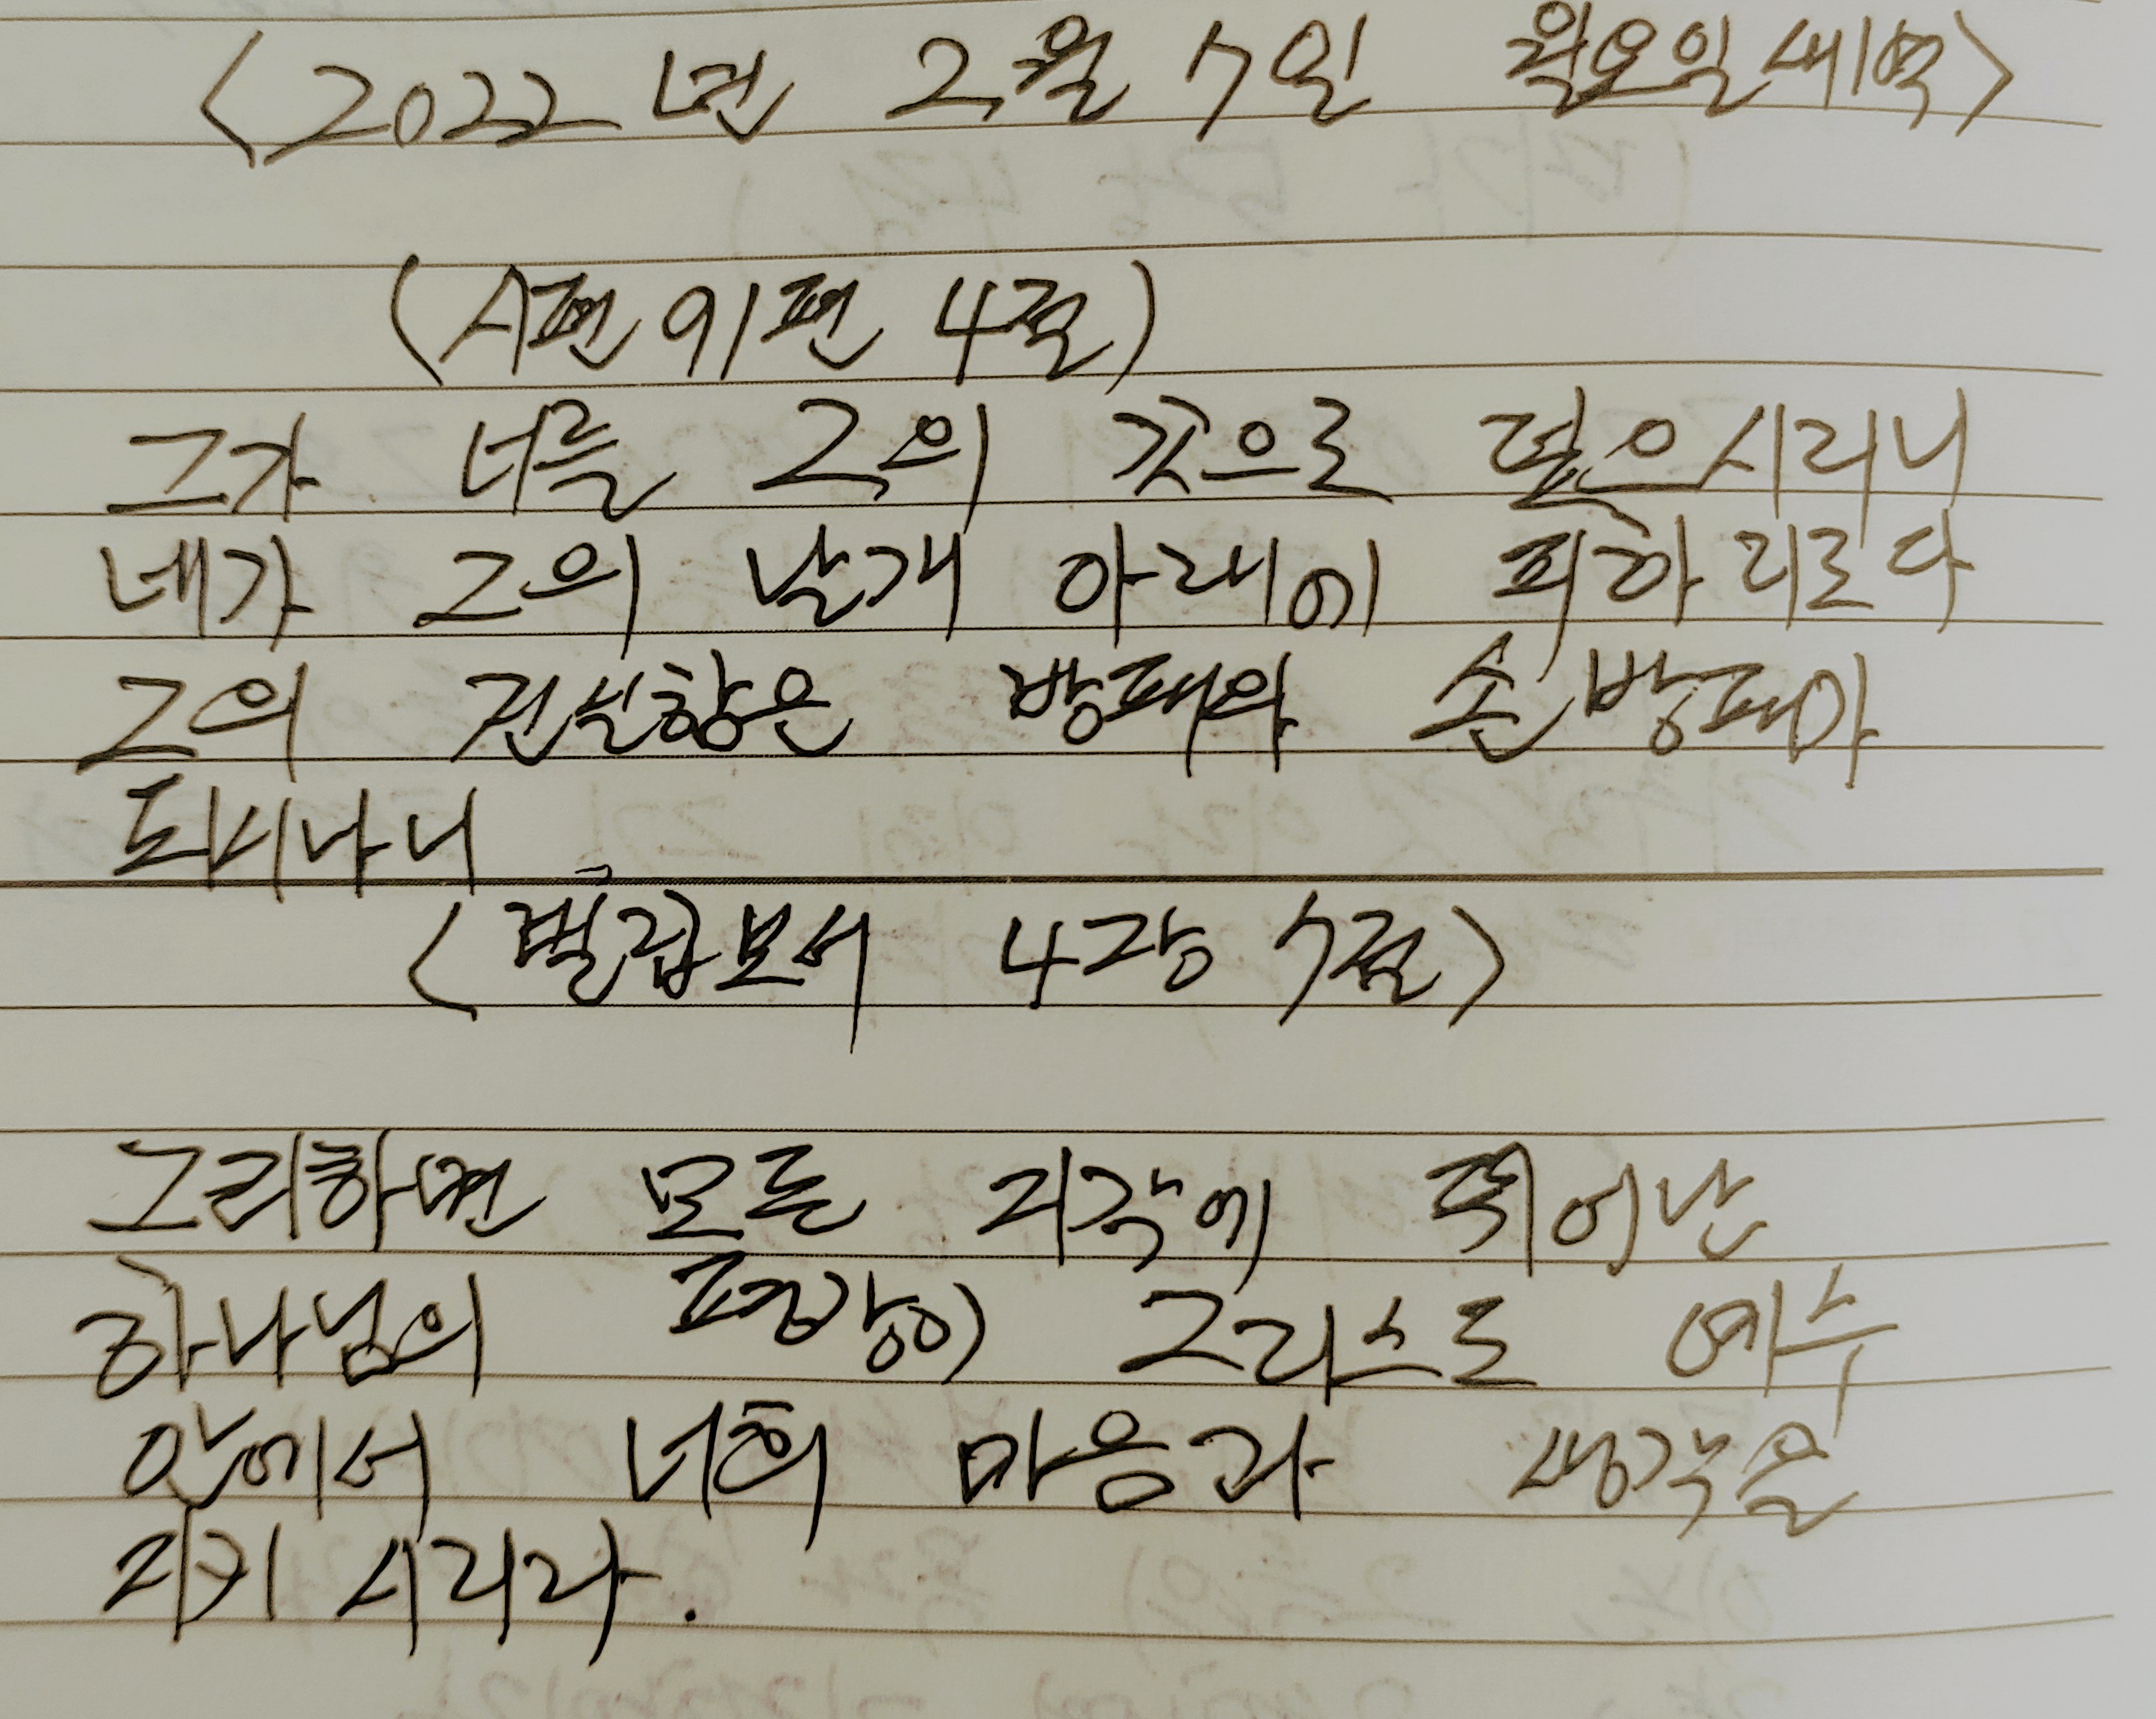 <2022년 2월 7일 월요일새벽>
(시편 91편 4절)
그가 너를 그의 깃으로 덮으시리니
네가 그의 날개 아래에 피하리로다
그의 진실함은 방패와 손방패가
되시나니
<빌립보서 4장 7절>
그리하면 모든 지각에 뛰어난
하나님의 평강이 그리스도 예수
안에서 너희 마음과 생각을
지키시리라.